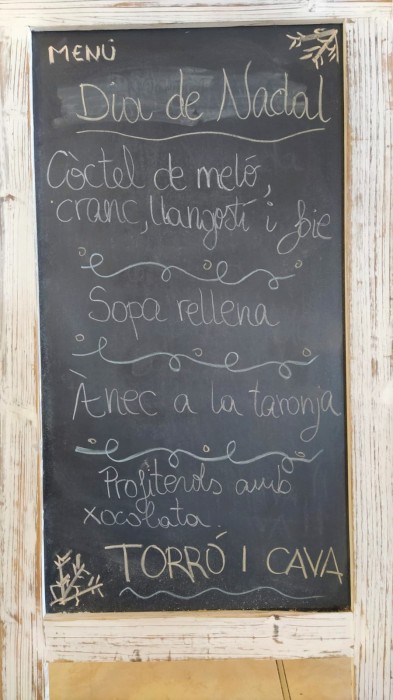 MENÚ
Dia de Nadal
Còctel de meló,
cranc, llangostí i foie
Sopa rellena
Ànec a la taronja
Profiterols amb
xocolata.
TORRÓ I CAVA